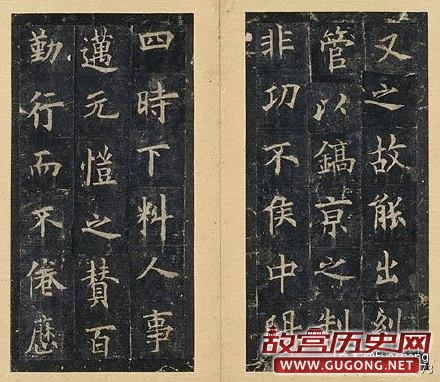 又之故能出糾
管以鎬京之制
非功不侯中
四時下料人事
邁元愷之贊百
勤行而不倦
故宫历史网
WWW.GUGONG.NET
73